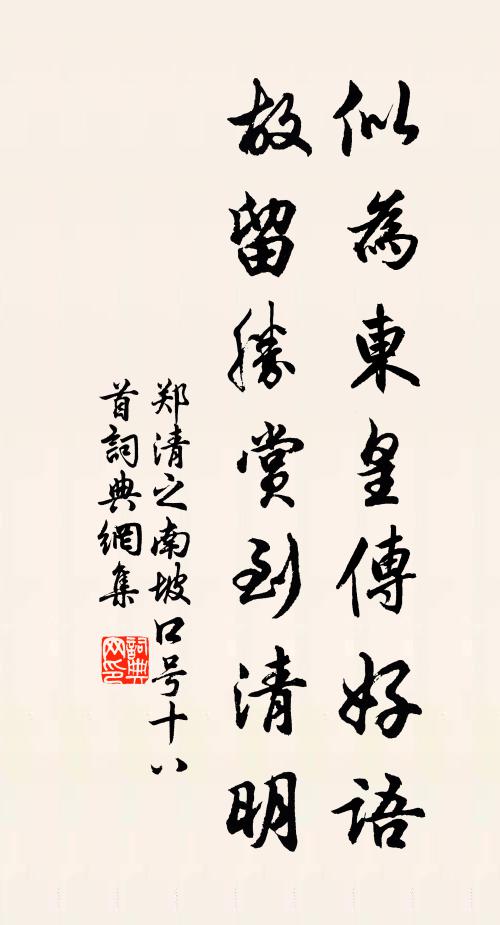 似為東皇傳好語
故留勝賞到清明
郑清之南坡口号十八
首詞典網集
詞典
网印